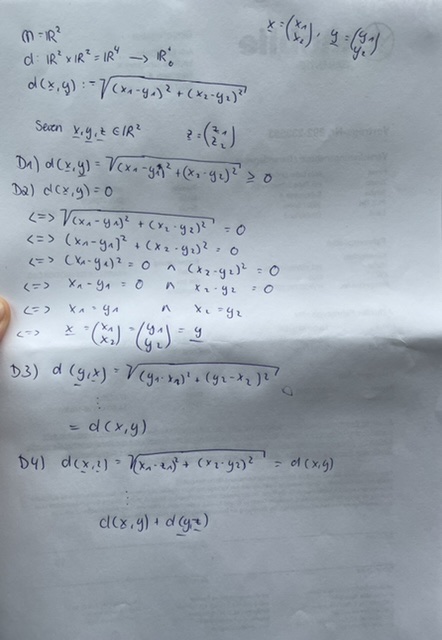 x = (x1 x2), y = (y1 y2)
M = ℝ²
d: ℝ² × ℝ² = ℝ⁴ → ℝ₀⁺
d(x,y) := √((x1-y1)² + (x2-y2)²)
Seien x,y,z ∈ ℝ² z = (z1 z2)
D1) d(x,y) = √((x1-y1)² + (x2-y2)²) ≥ 0
D2) d(x,y) = 0
<=> √((x1-y1)² + (x2-y2)²) = 0
<=> (x1-y1)² + (x2-y2)² = 0
<=> (x1-y1)² = 0 ∧ (x2-y2)² = 0
<=> x1-y1 = 0 ∧ x2-y2 = 0
<=> x1=y1 ∧ x2=y2
<=> x = (x1 x2) = (y1 y2) = y
D3) d(y,x) = √((y1-x1)² + (y2-x2)²)
⋮
= d(x,y)
D4) d(x,z) = √((x1-z1)² + (x2-y2)²) = d(x,y)
⋮
d(x,y) + d(y,z)